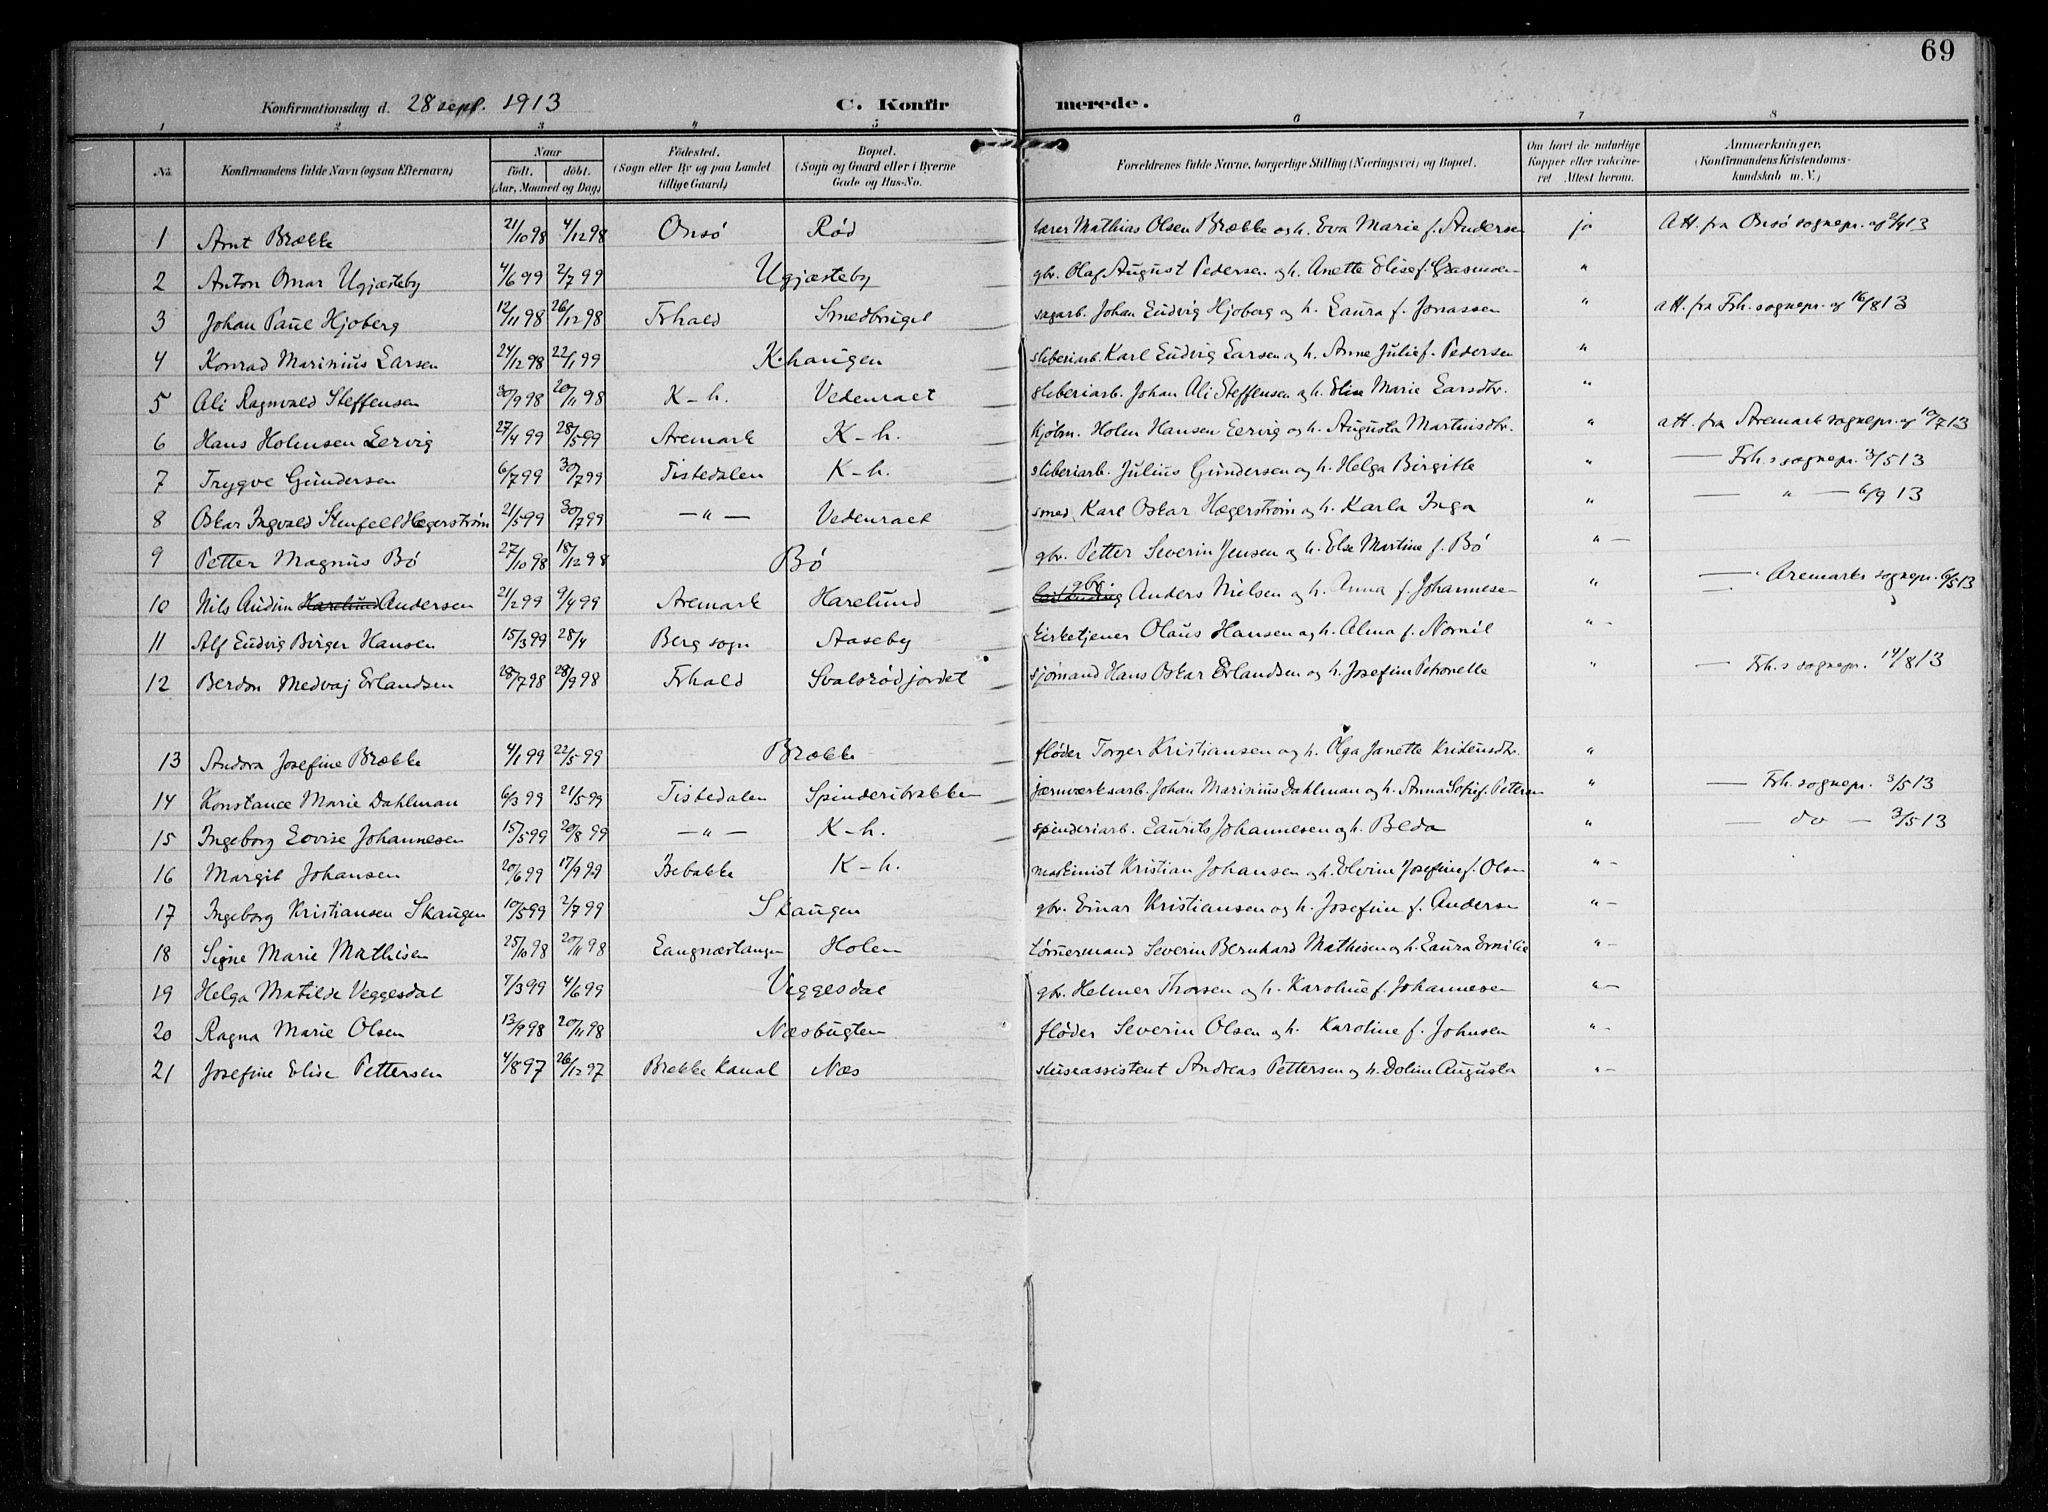 69
Konfirmationsdag d. 28 sept. 1913 C. Konfir merede.
1 2 3 " 5 6 7 8
No. Konfirmandens fulde Navn (ogsaa Efternavn) Naar födt. döbt. (Aar, Maaned og Dag) Födested. (Sogn eller By og paa Landet tillige Gaard) Bopæl. (Sogn og Gaard eller i Byerne Gade og Hus-No. Forældrenes fulde Navne, borgerlige Stilling (Næringsvei) og Bopæl. Om havt de naturlige Kopper eller vakcineret Attest herom. Anmærkninger. (Konfirmandens Kristendomskundskab m. V.)
1 Arnt Brække 21/10 98 4/12 98 Onsö Rød lærer Mathias Olsen Brække og h. Eva Marie f. Andersen ja Att. fra Onsö sognepr. af 2/4 13
2 Anton Omar Ugjæsteby 4/6 99 2/7 99 Ugjæsteby gbr. Olaf August Pedersen og h. Anette Elise f. "
3 Johan Paul Hjoberg 12/11 98 26/12 98 Frhald Smedbruget sagarb. Johan Ludvig Hjoberg og h. Laura f. Jonassen " att. fra Frh. sognepr. af 16/8 13
4 Konrad Marinius Larsen 24/12 98 22/1 99 K.haugen sliberiarb. Karl Ludvig Larsen og h. Anne Julie f. Pedersen "
5 Ali Ragnvald Steffensen 30/9 98 20/11 98 K-h. Vedenraet sliberiarb. Johan Ali Steffensen og h. Elise Marie Larsdtr. "
6 Hans Holmsen Lervig 27/4 99 28/5 99 Aremark K-h. kjøbm. Holm Hansen Lervig og h. Augusta Martinsdtr. " att. fra Aremark sognepr. af 10/7 13
7 Trygve Gundersen 6/7 99 30/7 99 Tistedalen K-h. sliberiarb. Julius Gundersen og h. Helga Birgitte " — Frh.s sognepr. 3/5 13
8 Oskar Ingvald Hægerstrøm 21/5 99 30/7 99 — " — Vedenraet smed, Karl Oskar Hægerstrøm og h. Karla Inga " — " — 6/9 13
9 Petter Magnus Bö 27/10 98 18/12 98 Bö gbr. Petter Severin Jensen og h. Else Martine f. Bö " —
10 Nils Audun Harelund Andersen 21/2 99 9/4 99 Aremark Harelund gbr. Anders Nielsen og h. Anna f. Johannese " — Aremarks sognepr. 6/5 13
11 Alf Ludvig Birger Hansen 15/3 99 28/4 Berg sogn Aaseby kirketjener Olaus Hansen og h. Alma f. " -
12 Berdon Medvaj Erlandsen 28/7 98 28/9 98 Frhald Svalsrödjordet sjømand Hans Oskar Erlandsen og h. Josefine Petronelle " — Frh.s sognepr. 14/8 13
13 Andora Josefine Brække 4/1 99 22/5 99 Brække fløder Torger Kristiansen og h. Olga Janette Kristensdtr. "
14 Konstance Marie Dahlman 6/3 99 21/5 99 Tistedalen Spinderibakken jernværksarb. Johan Marinius Dahlman og h. Anna Sofie f. Pettersen " — Frh. sognepr. 3/5 13
15 Ingeborg Lovise Johannesen 15/5 99 20/8 99 — " — K-h. spinderiarb. Laurits Johannesen og h. Beda " — do — 3/5 13
16 Margit Johansen 20/6 99 17/9 99 K-h. maskinist Kristian Johansen og h. Elvine Josefine f. Olsen " -
17 Ingeborg Kristiansen Skaugen 10/5 99 2/7 99 Skaugen gbr. Einar Kristiansen og h. Josefine f. Anderse " -
18 Signe Marie Mathisen 25/10 98 20/11 98 Langnæstangen Holen tømmermand Severin Bernhard Mathisen og h. Laura Emilie " -
19 Helga Matilde Veggesdal 7/3 99 4/6 99 Veggesdal gbr. Helmer Thorsen og h. Karoline f. Johannesen " -
20 Ragna Marie Olsen 13/9 98 20/11 98 Næsbugten fløder Severin Olsen og h. Karoline f. Johnsen " -
21 Josefine Elise Pettersen 4/8 97 26/12 97 Brække Kanal Næs sluseassistent Andreas Pettersen og h. Doline Augusta " -